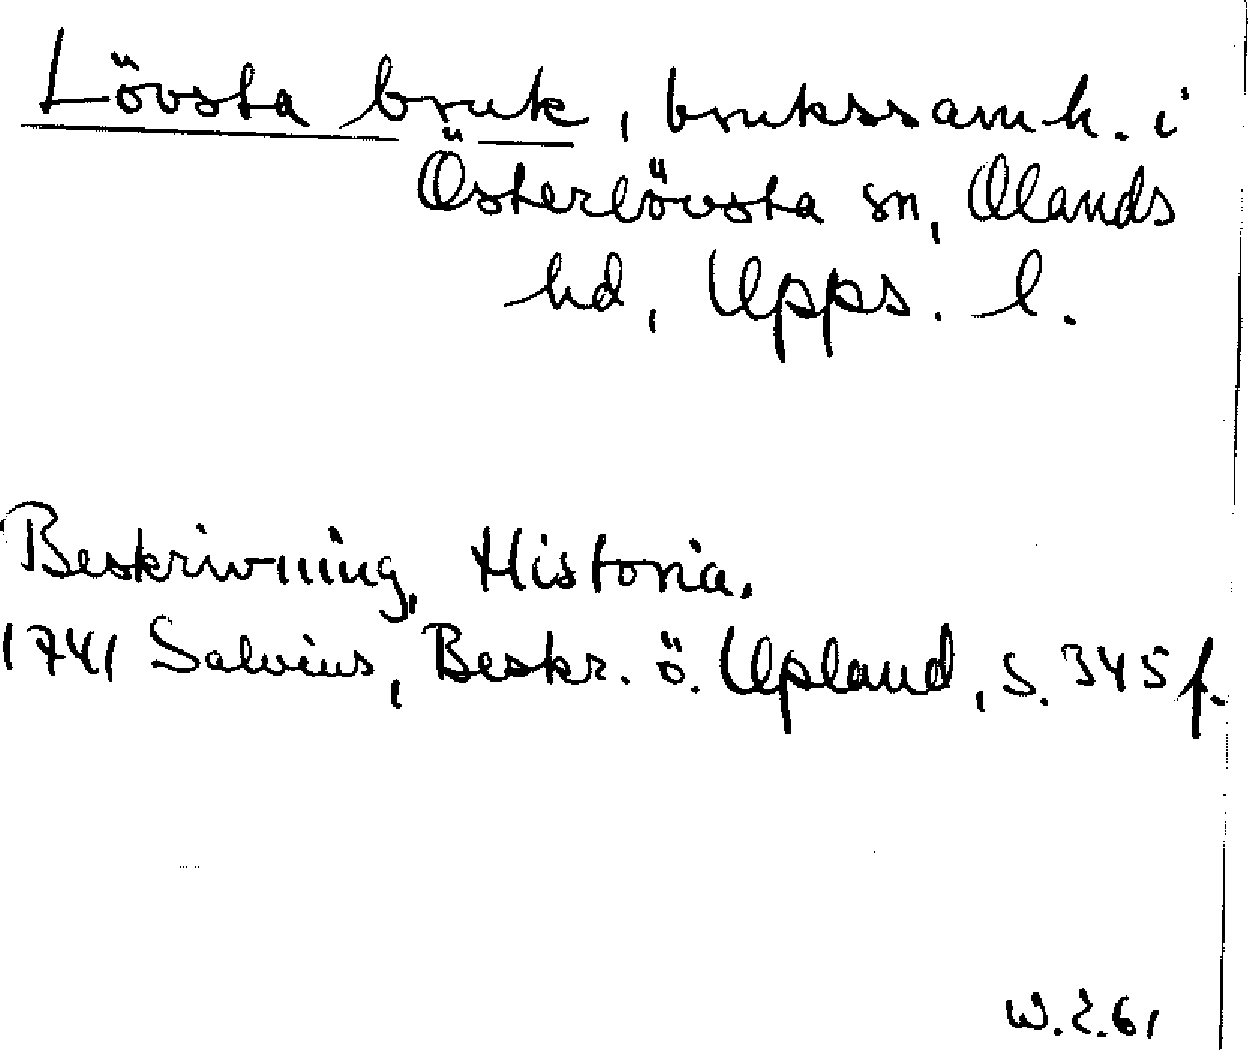 Lövsta bruk, brukssamh. i
Österlövsta sn, Olands
hd, Upps. l.
Beskrivning, Historia.
1741 Salvius, Beskr. ö. Upland, s. 345 f.
W.Z.61